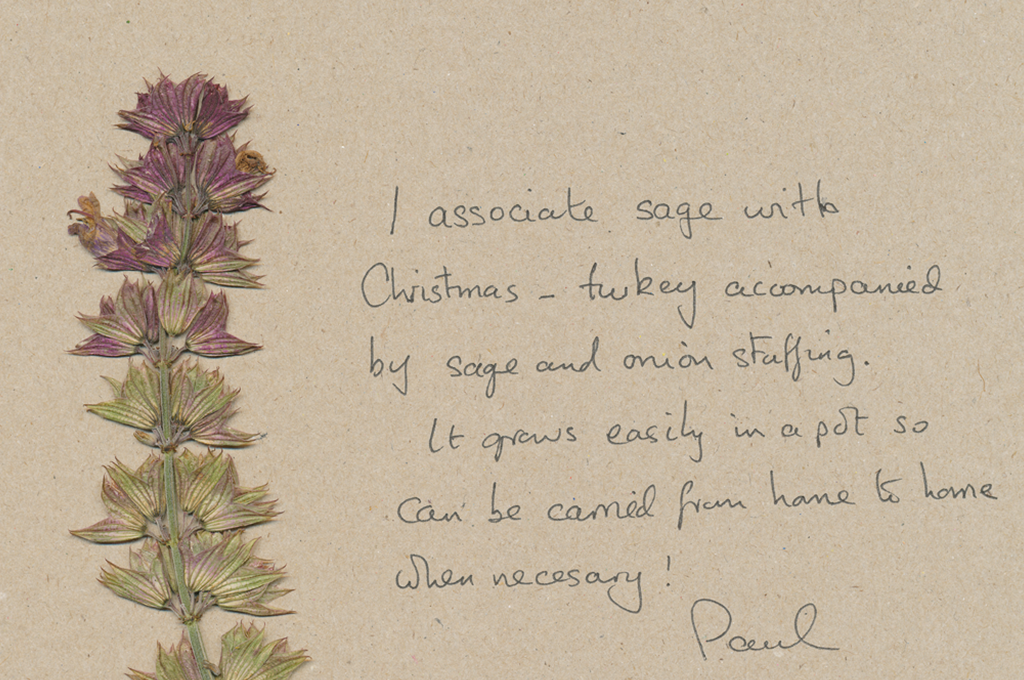 I associate sage with
Christmas - turkey accompanied
by sage and onion stuffing.
It grows easily in a pot so
can be carried from home to home
when necesary!
Paul